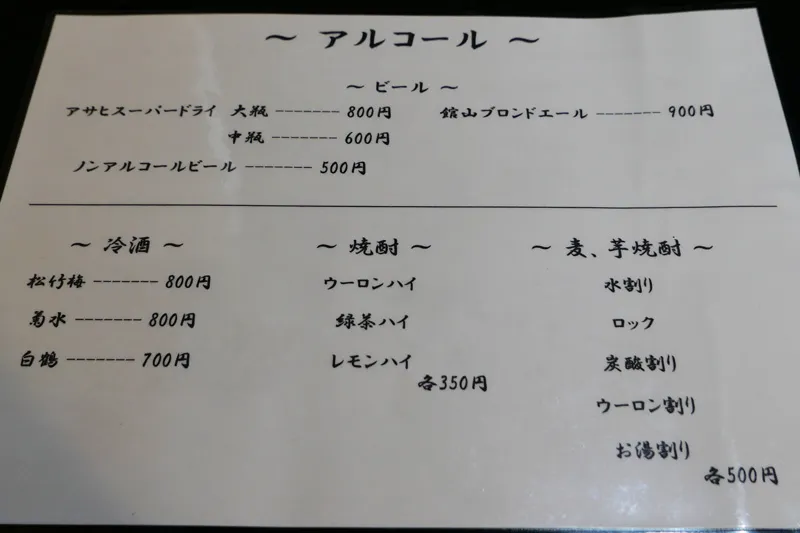 〜 アルコール 〜
〜 ビール 〜
アサヒスーパードライ 大瓶 ------- 800円
中瓶 ------- 600円
ノンアルコールビール ------- 500円
館山ブロンドエール ------- 900円
〜 冷酒 〜
松竹梅 ------- 800円
菊水 ------- 800円
白鶴 ------- 700円
〜 焼酎 〜
ウーロンハイ
緑茶ハイ
レモンハイ
各350円
〜 麦、芋焼酎 〜
水割り
ロック
炭酸割り
ウーロン割り
お湯割り
各500円